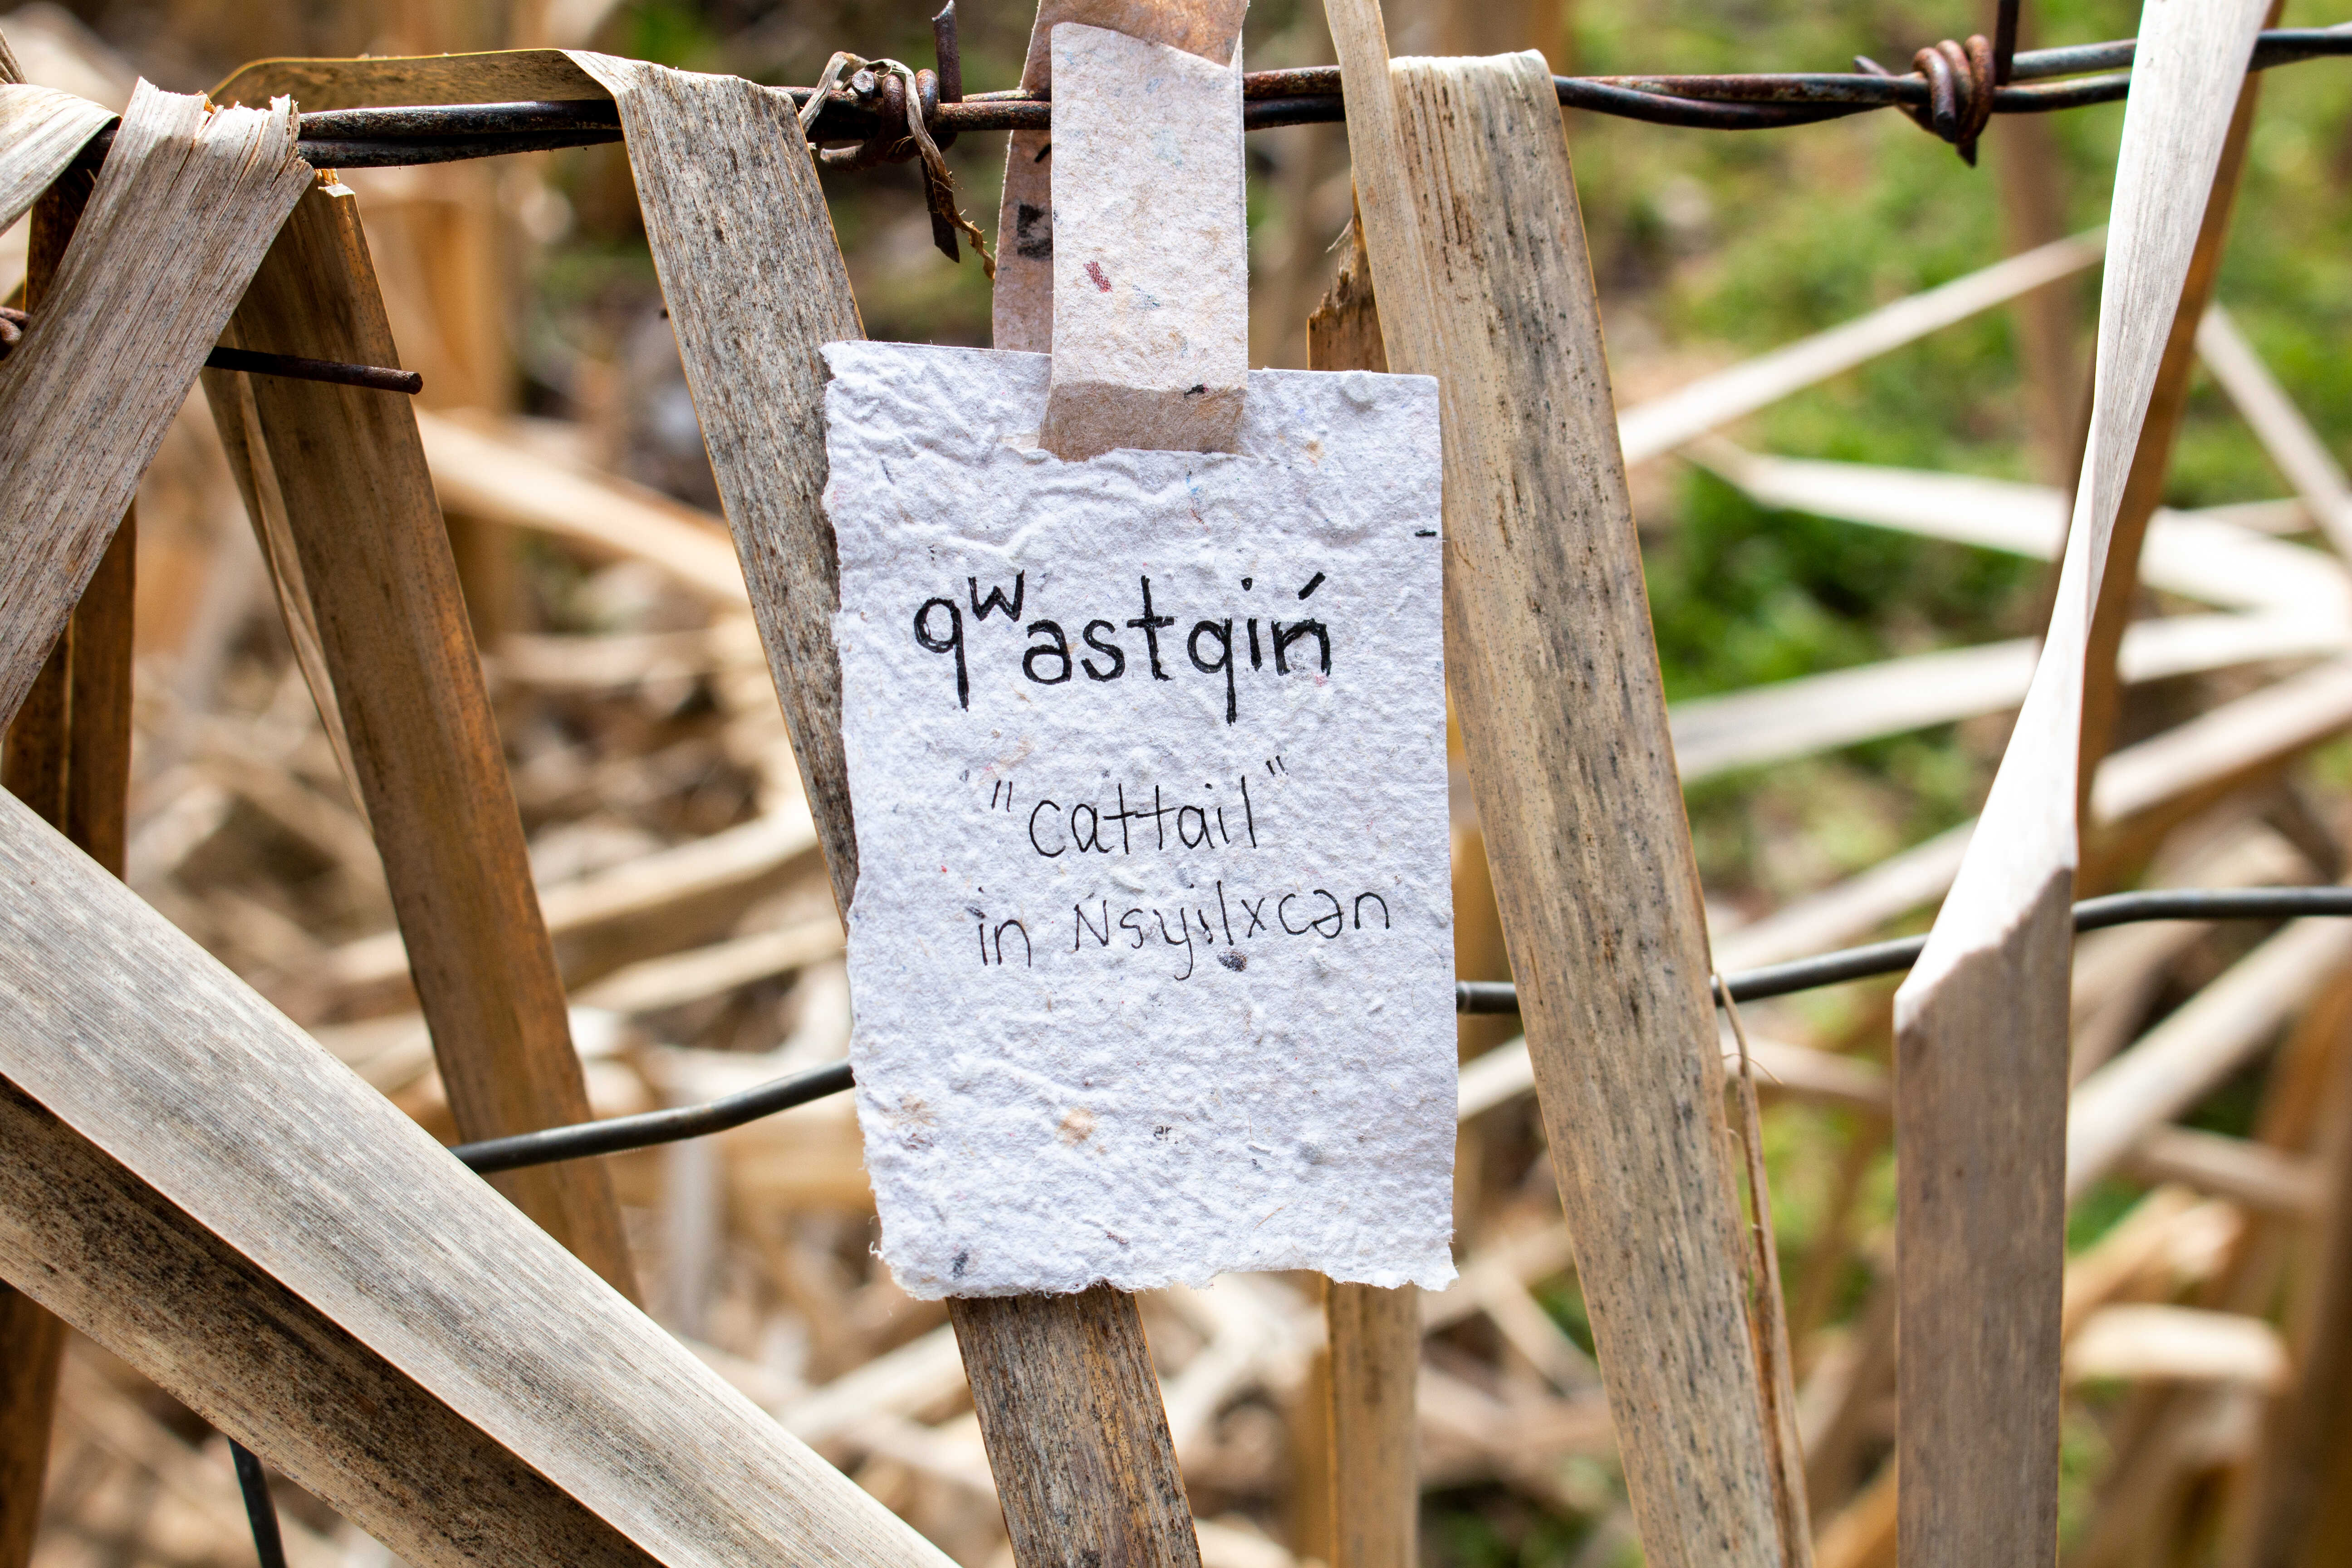 qʷastqin̓
"cattail"
in Nsyilxcən
er.